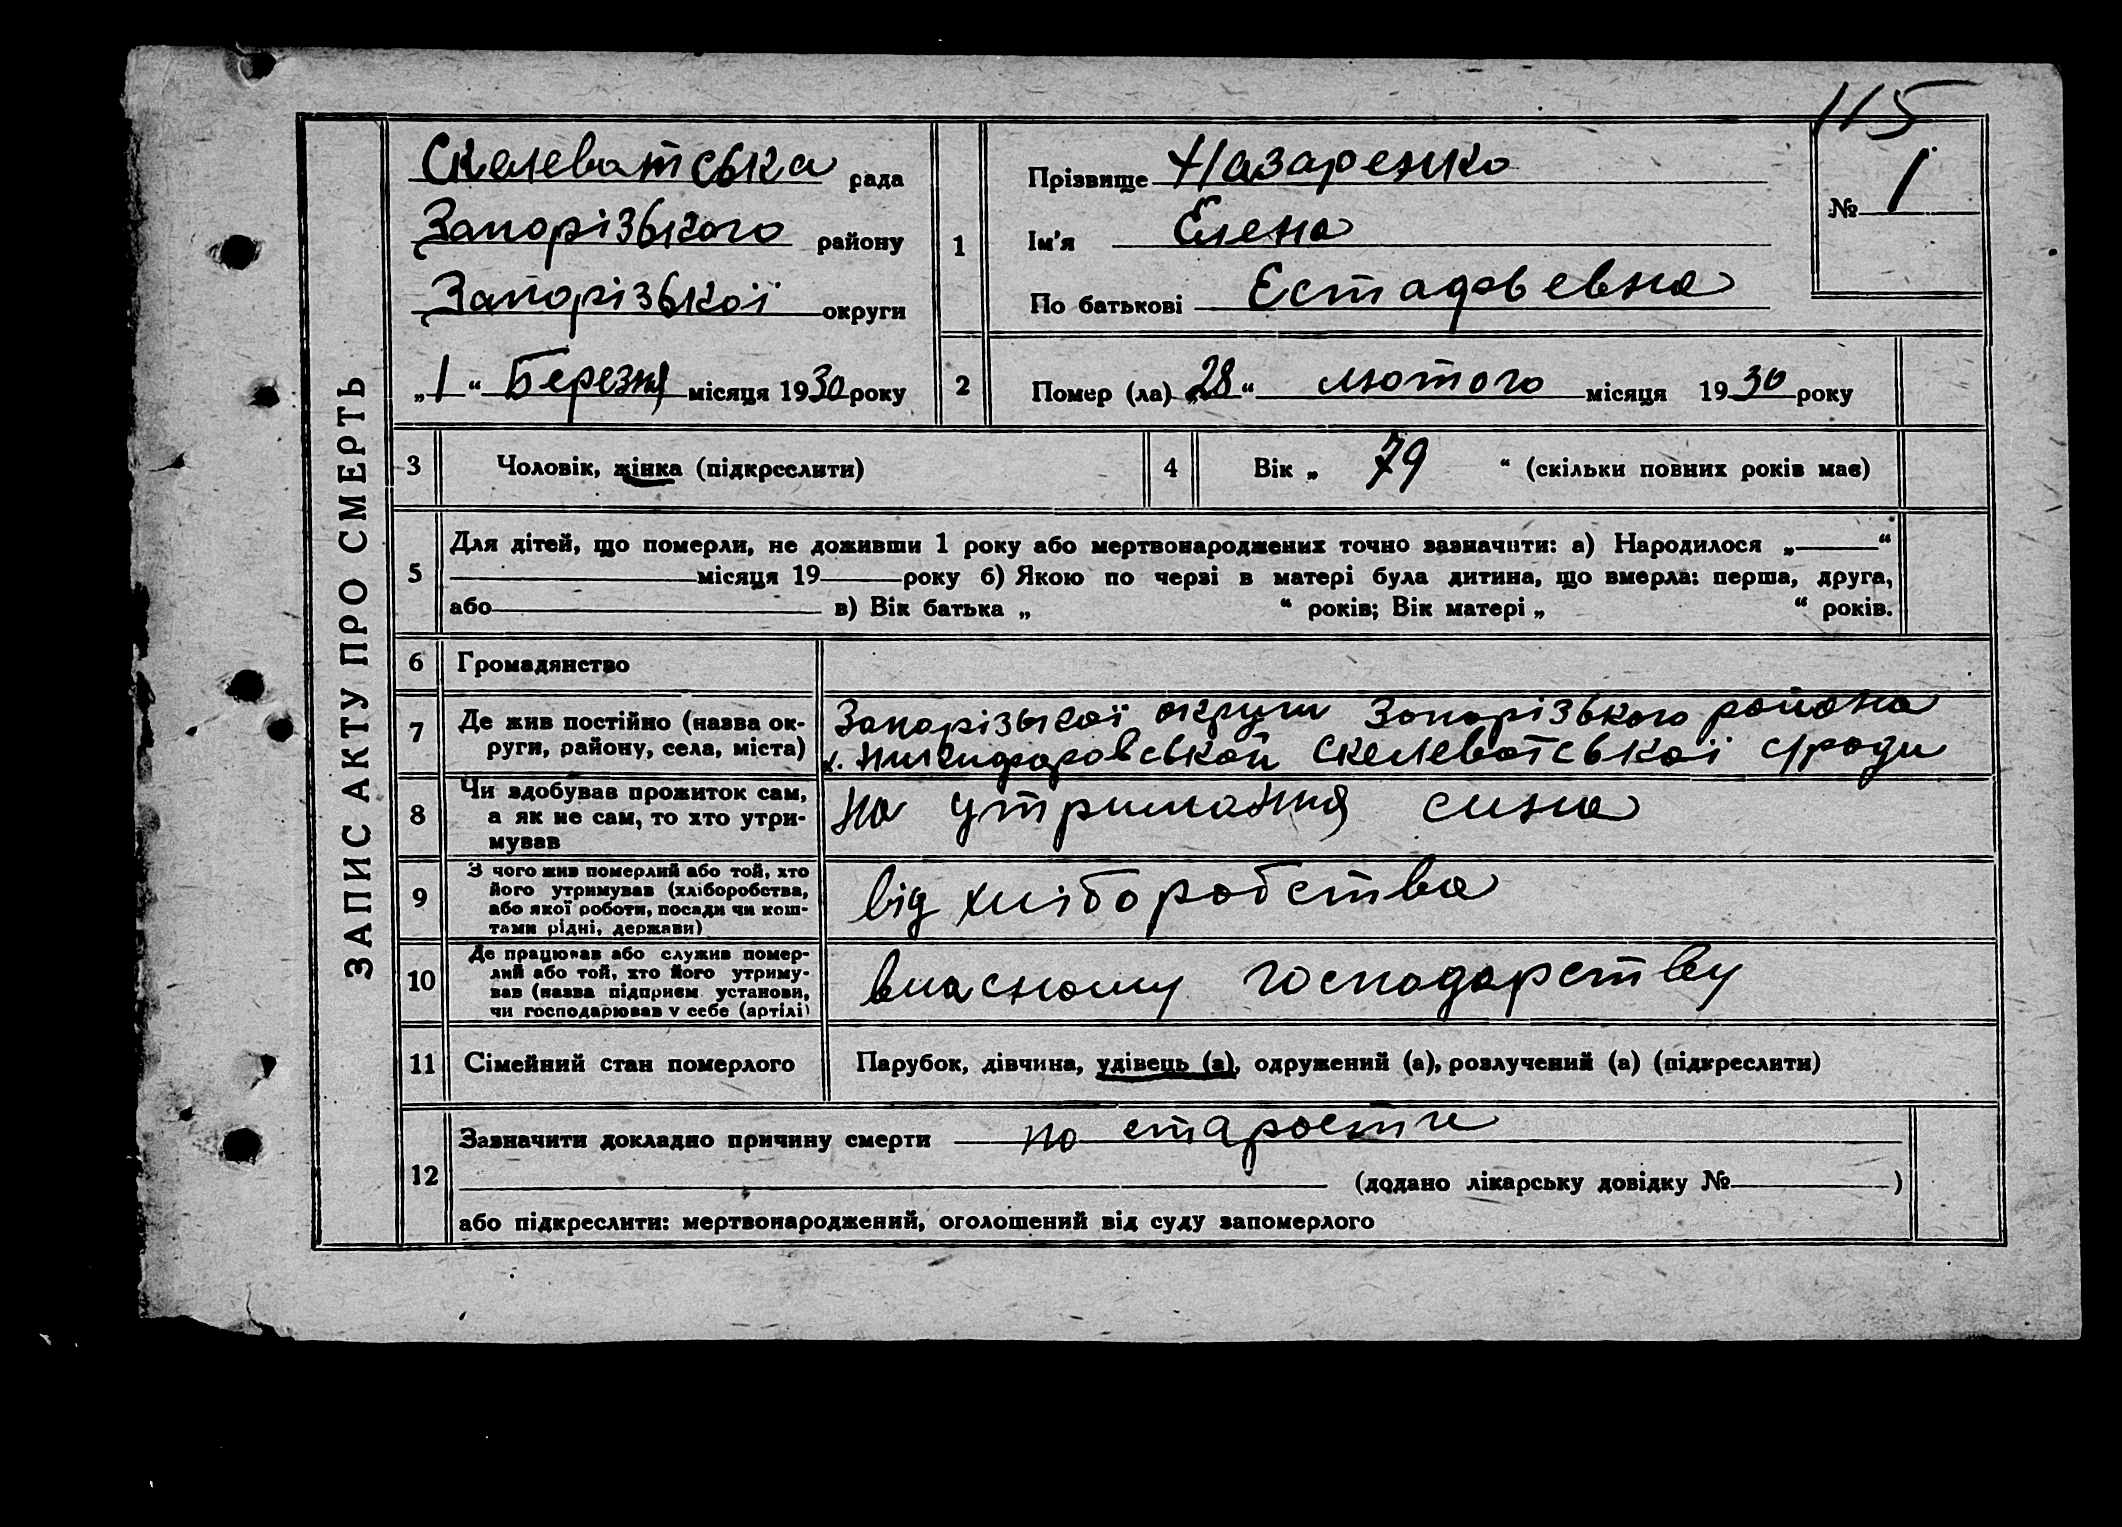 115
ЗАПИС АКТУ ПРО СМЕРТЬ
Скелеватська рада
Запорізького району
Запорізької округи
„1“ Березня місяця 1930 року
1
Прізвище Назаренко
Ім'я Елена
По батькові Естафьевна
№ 1
2
Помер (ла) „28“ лютого місяця 1930 року
3 Чоловік, жінка (підкреслити)
4 Вік „ 79 “ (скільки повних років має)
5
Для дітей, що померли, не доживши 1 року або мертвонароджених точно зазначити: а) Народилося „ “
місяця 19 року б) Якою по черзі в матері була дитина, що вмерла: перша, друга,
або в) Вік батька „ “ років; Вік матері „ “ років.
6 Громадянство
7
Де жив постійно (назва ок-
руги, району, села, міста)
Запорізької округи Запорізького района
х. Никифоровской Скелеватської с/ради
8
Чи здобував прожиток сам,
а як не сам, то хто утри-
мував
на утримання сина
9
З чого жив померлий або той, хто
його утримував (хліборобства,
або якої роботи, посади чи кош-
тами рідні, держави)
від хліборобства
10
Де працював або служив помер-
лий або той, хто його утриму-
вав (назва підприєм. установи,
чи господарював у себе (артілі)
власному господарству
11 Сімейний стан померлого
Парубок, дівчина, удівець (а), одружений (а), розлучений (а) (підкреслити)
12
Зазначити докладно причину смерти по старости
(додано лікарську довідку № )
або підкреслити: мертвонароджений, оголошений від суду запомерлого